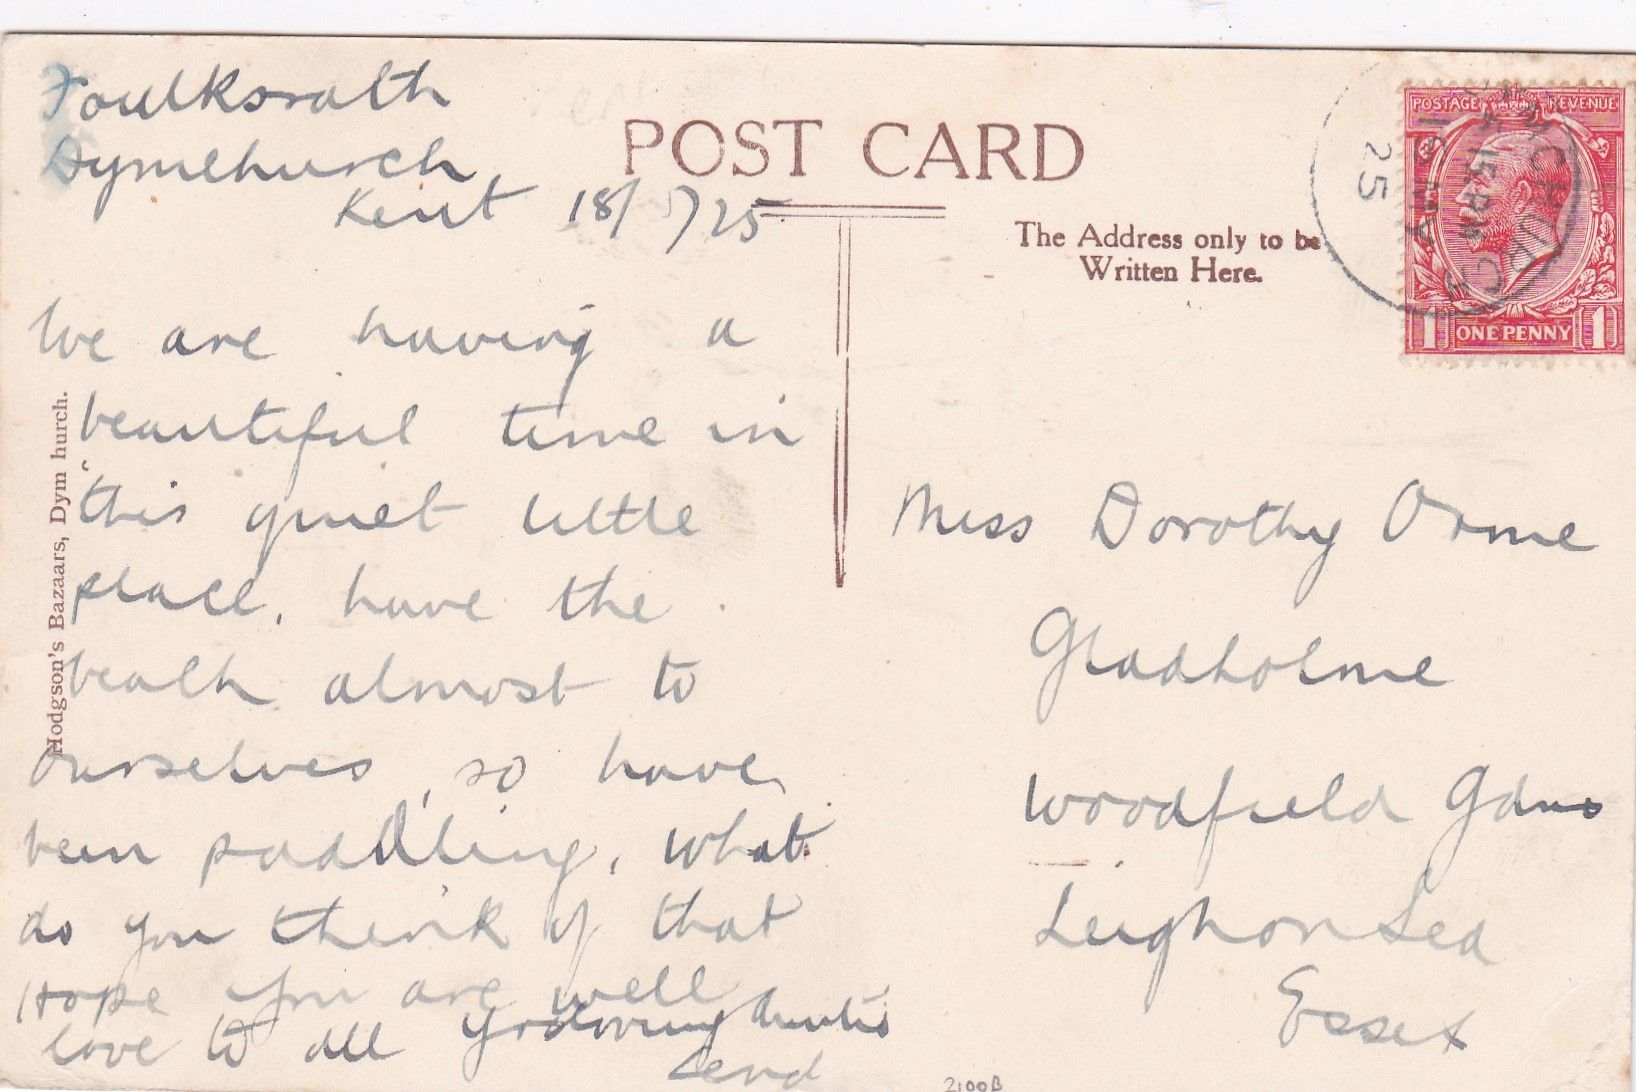 Foulksrath
Dymchurch
Kent 18/5/25
We are having a
beautiful time in
this quiet little
place, have the
beach almost to
ourselves, so have
been paddling, what
do you think of that
Hope you are well
love to all Yr loving Auntie
POST CARD
The Address only to be
Written Here.
Hodgson's Bazaars, Dymchurch.
POSTAGE REVENUE
1 ONE PENNY 1
15 PM
18 MY
25
Miss Dorothy Orme
Gladholme
Woodfield Gdns
Leigh on Sea
Essex
2100B